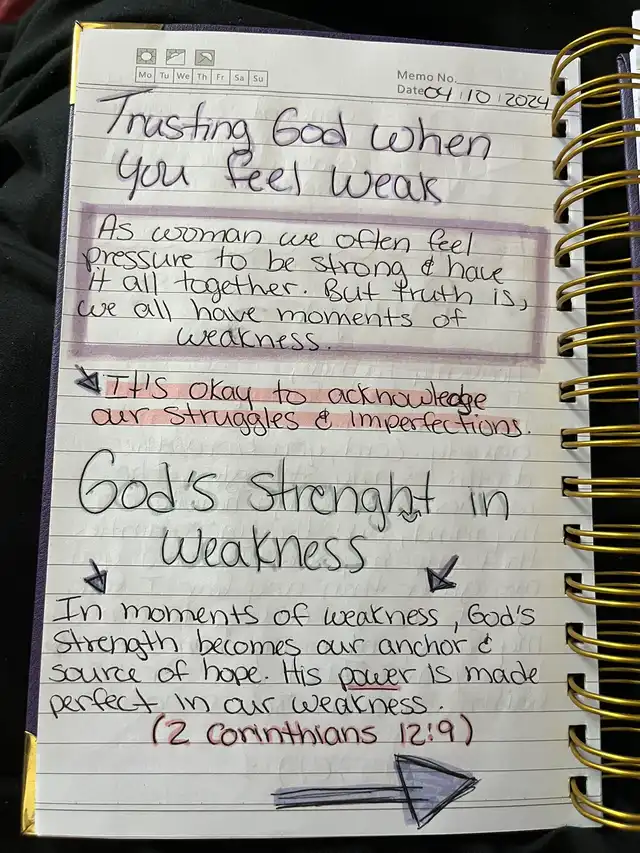 Mo Tu We Th Fr Sa Su
Memo No.
Date 04 10 2024
Trusting God when
you feel weak
As woman we often feel
pressure to be strong & have
it all together. But truth is,
we all have moments of
weakness.
It's okay to acknowledge
our struggles & imperfections.
God's Strenght in
Weakness
In moments of weakness, God's
Strength becomes our anchor &
source of hope. His power is made
perfect in our weakness.
(2 Corinthians 12:9)